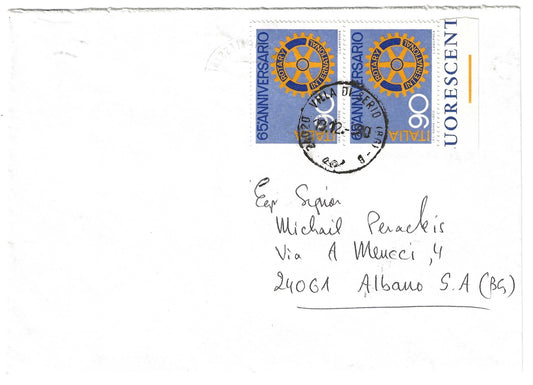 65 ANNIVERSARIO
ROTARY
INTERNATIONAL
ITALIA
90
65 ANNIVERSARIO
ROTARY
INTERNATIONAL
ITALIA
90
UORESCENT
VILLA DI SERIO (BG) - B
Egr Signor
Michail Perackis
Via A Meucci, 4
24061 Albano S.A (BG)